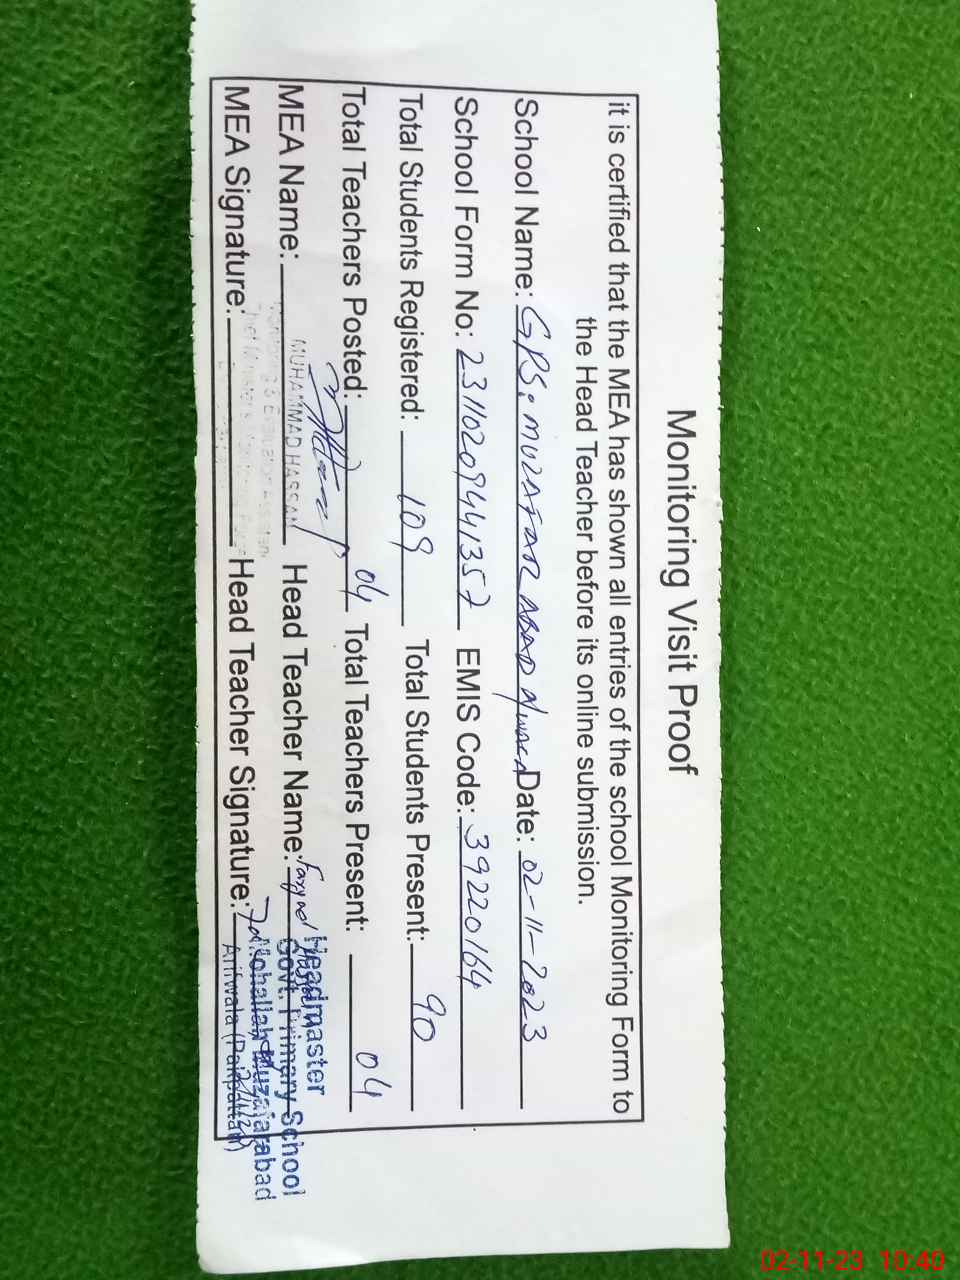 Monitoring Visit Proof
it is certified that the MEA has shown all entries of the school Monitoring Form to
the Head Teacher before its online submission.
School Name: GPS. MUZAFAR ABAD Date: 02-11-2023
School Form No: 23110209441357 EMIS Code: 39220164
Total Students Registered: 109 Total Students Present: 90
Total Teachers Posted: 04 Total Teachers Present: 04
MEA Name: MUHAMMAD HASSAN Head Teacher Name:
MEA Signature: Head Teacher Signature:
Headmaster
Govt. Primary School
Muzafarabad
Arifwala (Pakpattan)
02-11-23 10:40